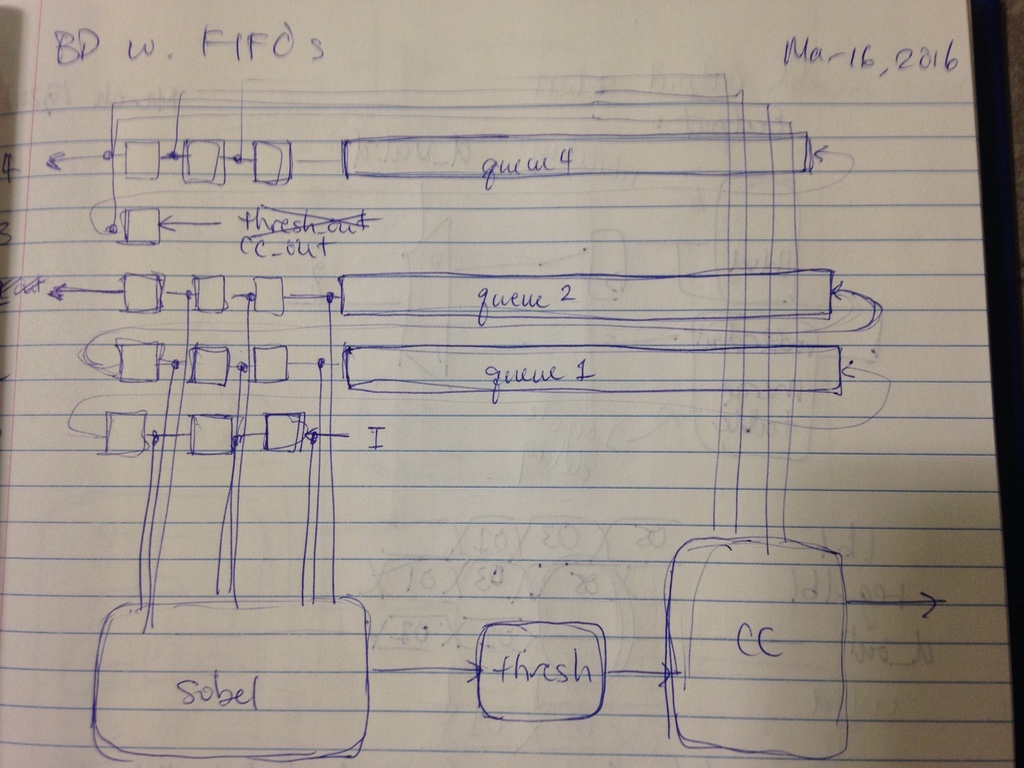 BD w. FIFOs
Mar-16, 2016
4
queue 4
3
thresh_out
CC_out
queue 2
queue 1
I
Sobel
thresh
CC